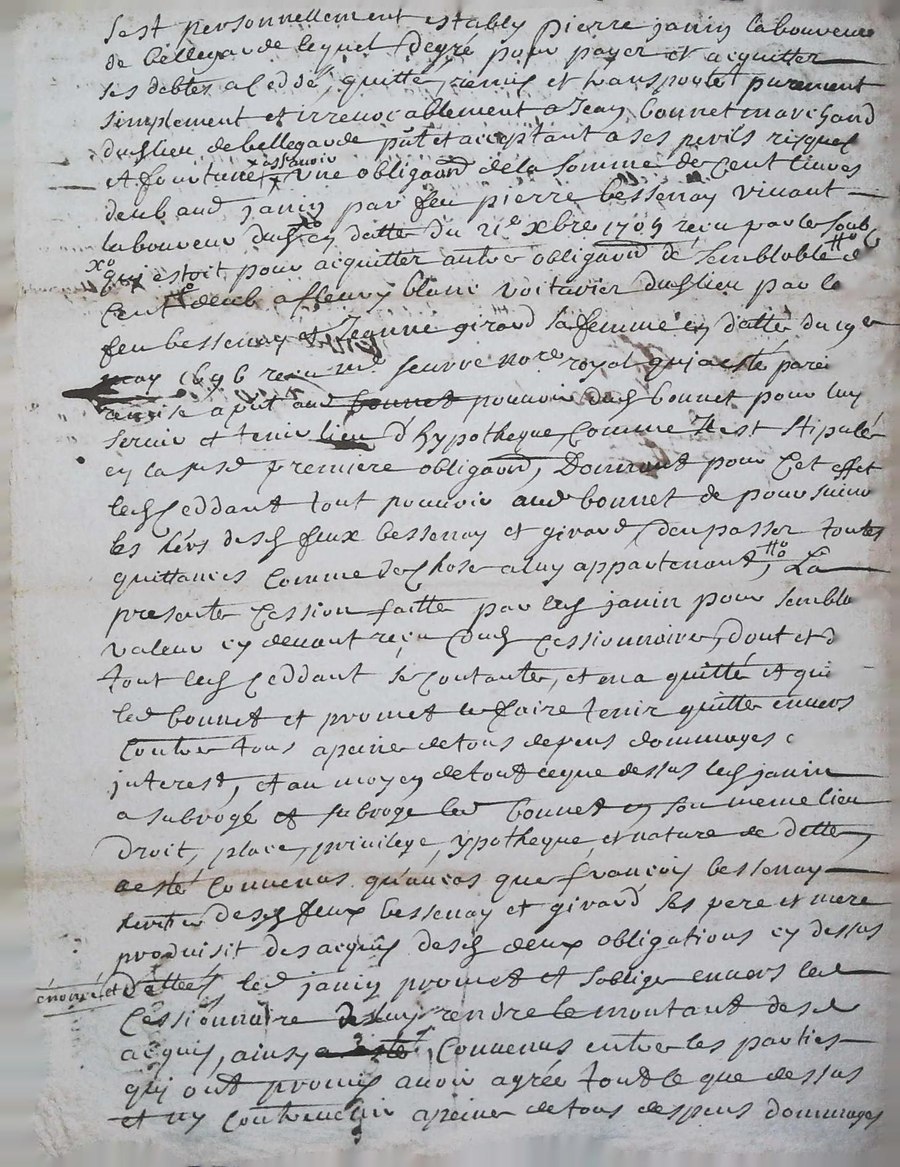 s'est personnellement estably pierre janin laboureur
de bellegarde lequel degré pour payer et acquitter
ses debtes a ceddé, quitté, remis et transporté purement
simplement et irrevocablement a Jean bonnet marchand
dud lieu de bellegarde pnt et acceptant a ses perils risques
et fortune x assavoir une obligaon de la somme de cent livres
deub aud janin par feu pierre bessenay vivant
laboureur dud en datte du 21e xbre 1709 receu par le soub
xo qui estoit pour acquitter autre obligaon de semblable Ho
cent ll deub a fleury blanc voiturier dud lieu par le
feu bessenay et Jeanne girard sa femme en datte du 19e
may 1696 receu me nore royal qui a esté
remise a pnt aud bonnet pouvoir dud bonnet pour luy
servir et tenir lieu d'hypotheque comme Il est stipulé
en la susd premiere obligaon, Donnant pour cet effet
led ceddant tout pouvoir aud bonnet de poursuivre
les hers desd feux bessenay et girard d'en passer toutes
quittances comme de chose a luy appartenant, Ho La
presente cession faitte par led janin pour semble
valeur cy devant receu dud cessionnaire, dont et d
tout led ceddant se contante, et en a quitté et qui
led bonnet et promet le faire tenir quitte envers
contre tous a peine de tous depens dommages
interest, et au moyen de tout ce que dessus led janin
a subrogé et subroge led bonnet en son meme lieu
droit, place, privilege, ypotheque, et nature de dette
a esté convenus qu'au cas que françois bessenay
heritier desd feux bessenay et girard ses pere et mere
produisit des acquis desd deux obligations cy dessus
énoncé et dattees led janin promet et s'oblige envers led
cessionnaire de luy rendre le montant desd
acquis, ainsy a esté convenus entre les parties
qui ont promis avoir agrée tout ce que dessus
et ny contrevenir a peine de tous despens dommages